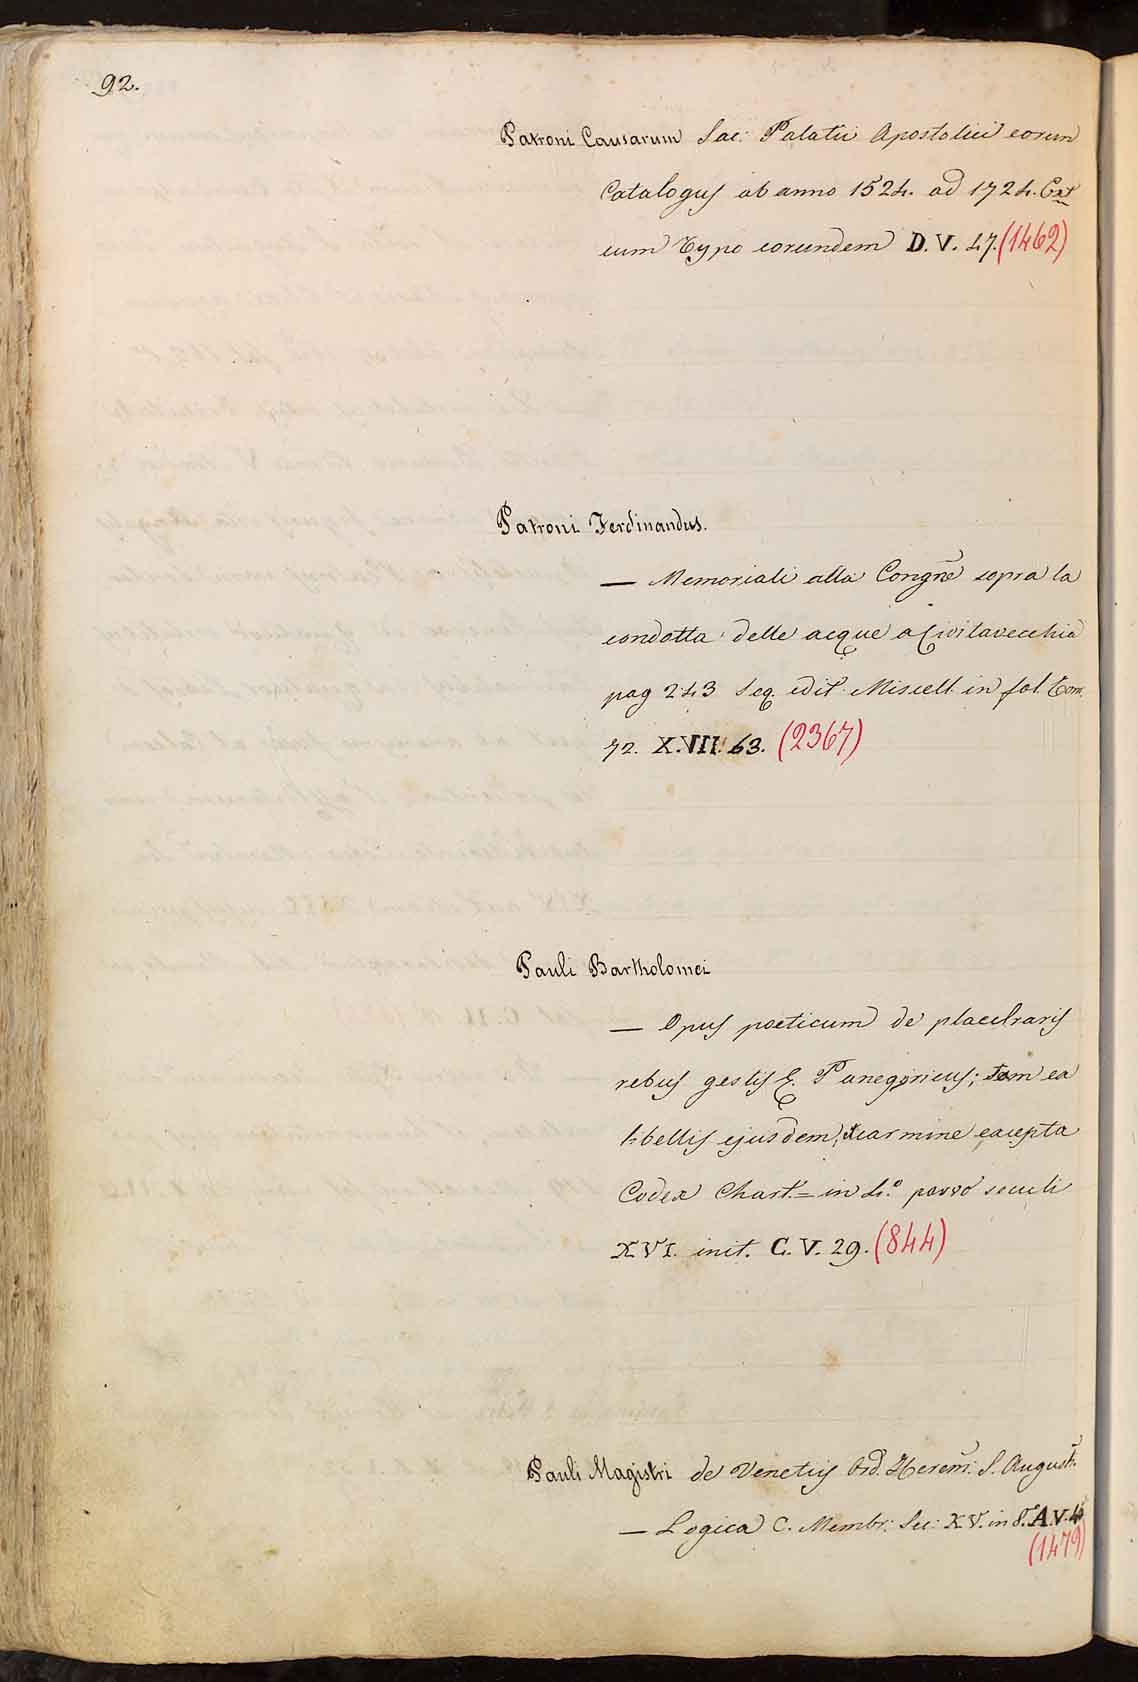 92.
Patroni Causarum Sac: Palatii Apostolici eorum
Catalogus ab anno 1524. ad 1724. Ext
cum Typo eorundem D. V. 47. (1462)
Patroni Ferdinandus.
— Memoriali alla Congñe sopra la
condotta delle acque a Civitavecchia
pag 243 seq. edit. Miscell. in fol. Tom.
72. X.VII. 63. (2367)
Pauli Bartholomei
— Opus poeticum de
rebus gestis E. Panegyricus; tam ea
libellis ejusdem, carmine excepta
Codex Chart. = in 4.° parvo seculi
XVI. init. C. V. 29. (844)
Pauli Magistri de Venetiis Ord. Herem: S. August.
— Logica C. Membr: Sec: XV. in 8.° A.V. 4
(1479)